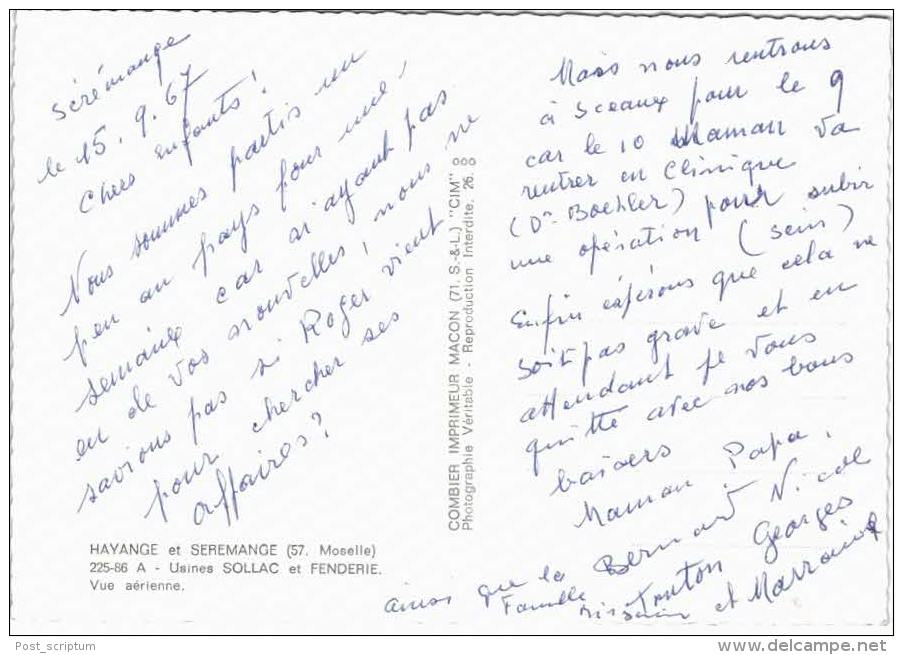 Sérémange
le 15.9.67
Chers enfants!
Nous sommes partis un
peu au pays pour une,
semaine car n'ayant pas
eu de vos nouvelles, nous ne
savions pas si Roger vient
pour chercher ses
affaires?
HAYANGE et SEREMANGE (57. Moselle)
225-86 A - Usines SOLLAC et FENDERIE.
Vue aérienne.
COMBIER IMPRIMEUR MACON (71. S.-&-L.) "CIM"
Photographie Véritable - Reproduction Interdite. 26.
Mais nous rentrons
à Sceaux pour le 9
car le 10 Maman va
rentrer en Clinique
(Dr. Boehler) pour subir
une opération (sein)
Enfin espérons que cela ne
soit pas grave et en
attendant je vous
quitte avec nos bons
baisers
Maman, Papa,
Bernard Nicole
Tonton Georges
et Marraine
ainsi que la
Famille
Post_scriptum
www.delcampe.net